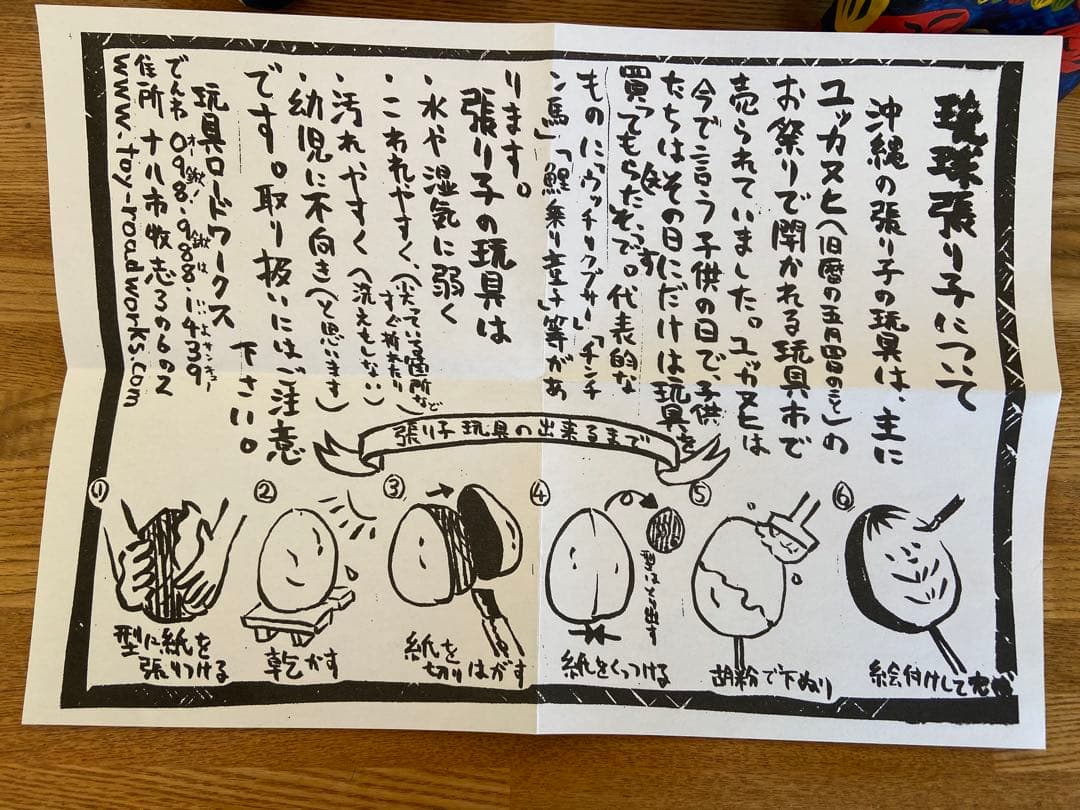 琉球張り子について
沖縄の張り子の玩具は、主に
ユッカヌヒ(旧暦の五月四日のこと)の
お祭りで開かれる玩具市で
売られていました。ユッカヌヒは
今で言う子供の日で、子供
たちはその日にだけは玩具を
買ってもらえたそうです。代表的な
ものに「ウッチリクブサー」「チンチ
ン馬」「鯉乗り童子」等があ
ります。
張り子の玩具は
・水や湿気に弱く
・こわれやすく、(尖っている箇所など
すぐ折れたり)
・汚れやすく(洗えもしない)
・幼児に不向き(と思います)
です。取り扱いにはご注意
下さい。
玩具ロードワークス
でんわ 098-988-1439
住所 ナハ市牧志3の6の2
www.toy-roadworks.com
張り子玩具の出来るまで
①
型に紙を
張りつける
②
乾かす
③
紙を
切りはがす
④
型はとり出す
紙をくっつける
⑤
胡粉で下ぬり
⑥
絵付けして完成